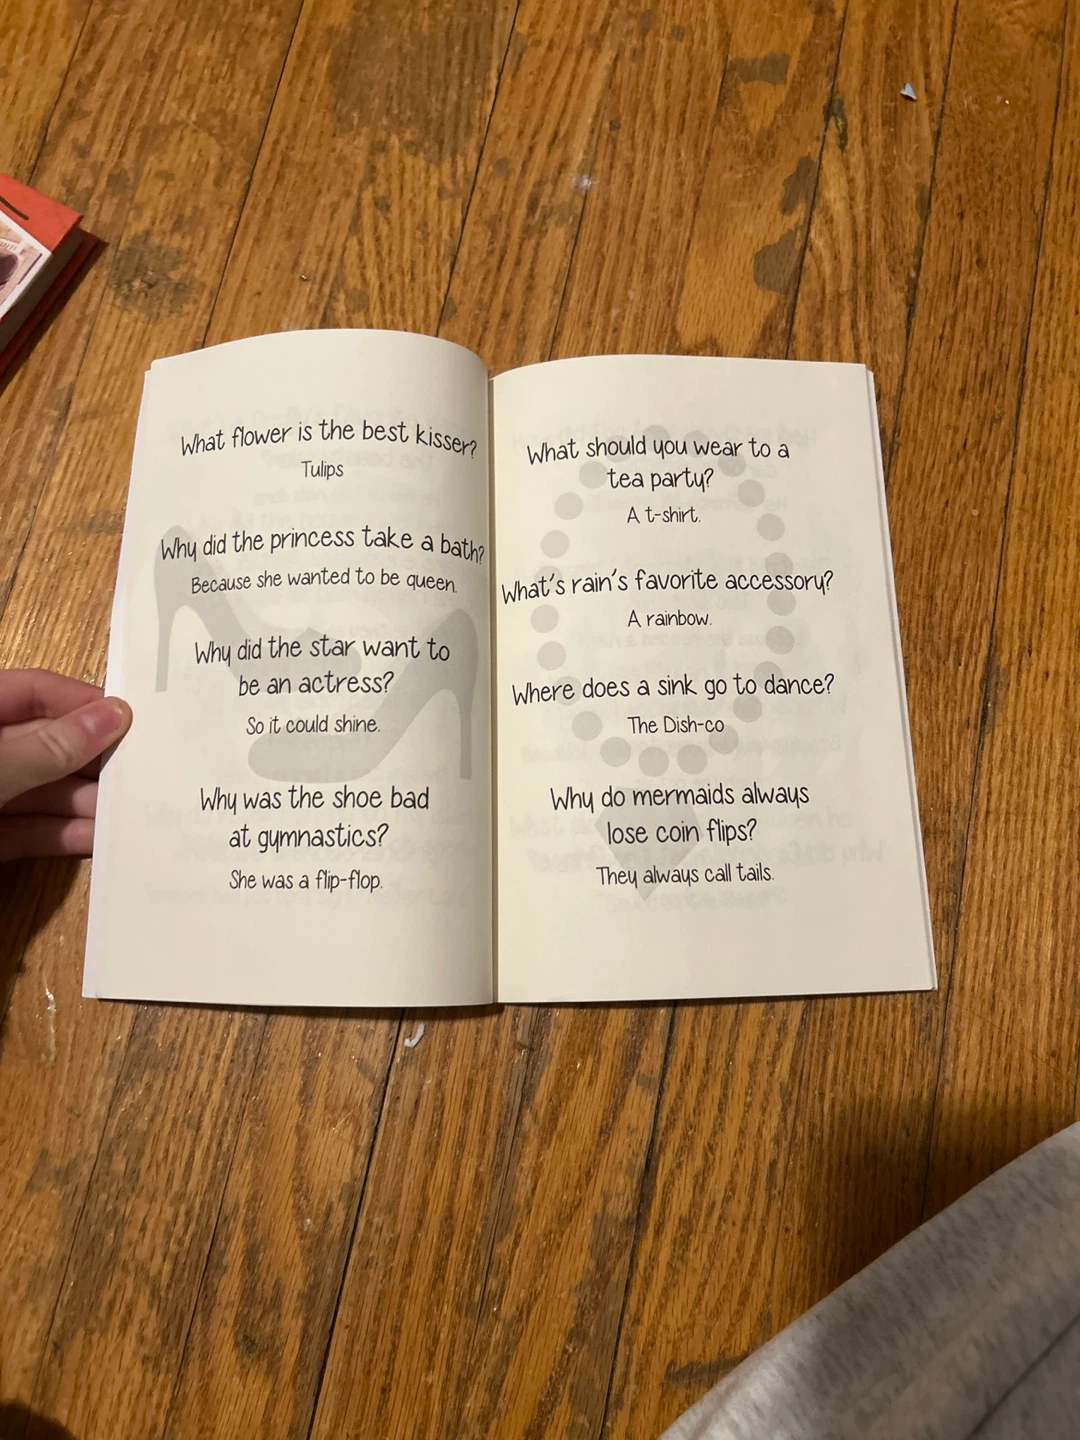 What flower is the best kisser?
Tulips
Why did the princess take a bath?
Because she wanted to be queen.
Why did the star want to
be an actress?
So it could shine.
Why was the shoe bad
at gymnastics?
She was a flip-flop.
What should you wear to a
tea party?
A t-shirt.
What's rain's favorite accessory?
A rainbow.
Where does a sink go to dance?
The Dish-co
Why do mermaids always
lose coin flips?
They always call tails.